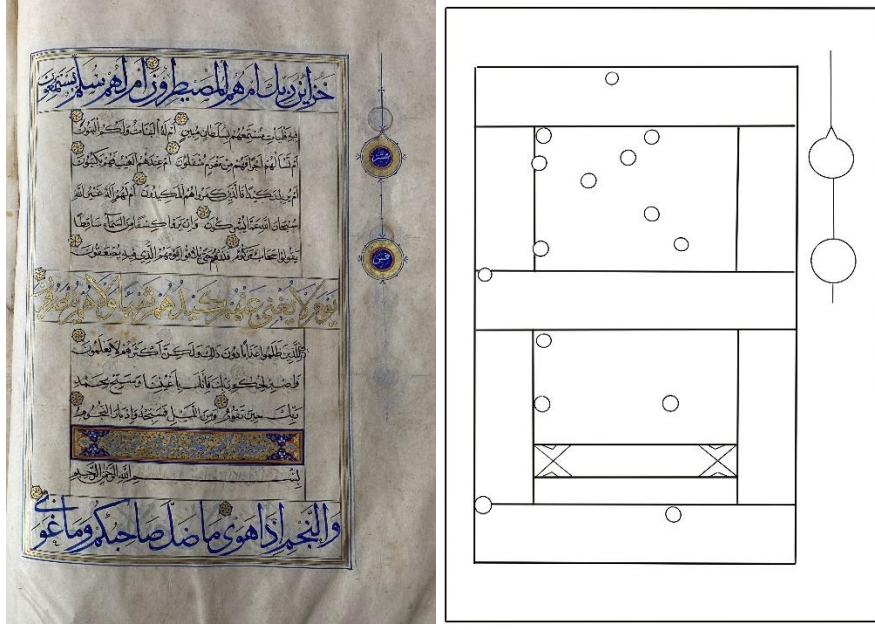 خزاين ربك ام هم المصيطرون ام لهم سلم يستمعون
فيه فليات مستمعهم بسلطان مبين ام له البنات ولكم البنون
ام تسألهم اجرا فهم من مغرم مثقلون ام عندهم الغيب فهم يكتبون
ام يريدون كيدا فالذين كفروا هم المكيدون ام لهم اله غير الله
سبحان الله عما يشركون وان يروا كسفا من السماء ساقطا
يقولوا سحاب مركوم فذرهم حتى يلاقوا يومهم الذي فيه يصعقون
يوم لا يغني عنهم كيدهم شيئا ولا هم ينصرون
للذين ظلموا عذابا دون ذلك ولكن اكثرهم لا يعلمون
واصبر لحكم ربك فانك باعيننا وسبح بحمد
ربك حين تقوم ومن الليل فسبحه وادبار النجوم
بسم الله الرحمن الرحيم
والنجم اذا هوى ما ضل صاحبكم وما غوى